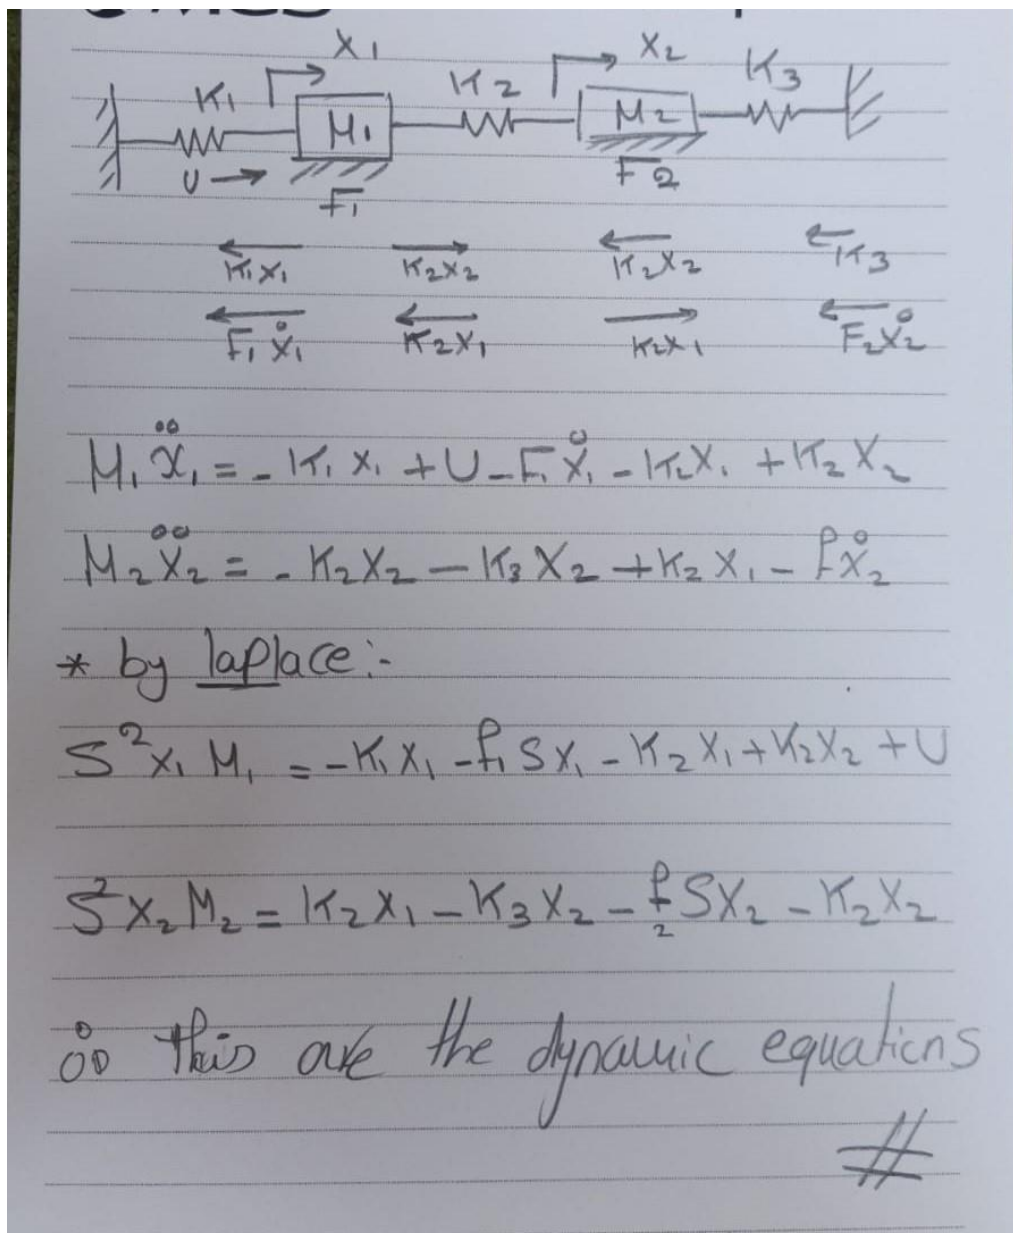 X₁ X₂
K₁ K₂ K₃
M₁ M₂
U → F₁ F2
K₁X₁ K₂X₂ K₂X₂ K3
F₁Ẋ₁ K₂X₁ K₂X₁ F₂Ẋ₂
M₁ẍ₁ = - K₁X₁ + U - F₁Ẋ₁ - K₂X₁ + K₂X₂
M₂Ẍ₂ = - K₂X₂ - K₃X₂ + K₂X₁ - fẊ₂
* by laplace:-
S²X₁M₁ = -K₁X₁ - f₁SX₁ - K₂X₁ + K₂X₂ + U
S²X₂M₂ = K₂X₁ - K₃X₂ - f₂SX₂ - K₂X₂
∴ this are the dynamic equations
#